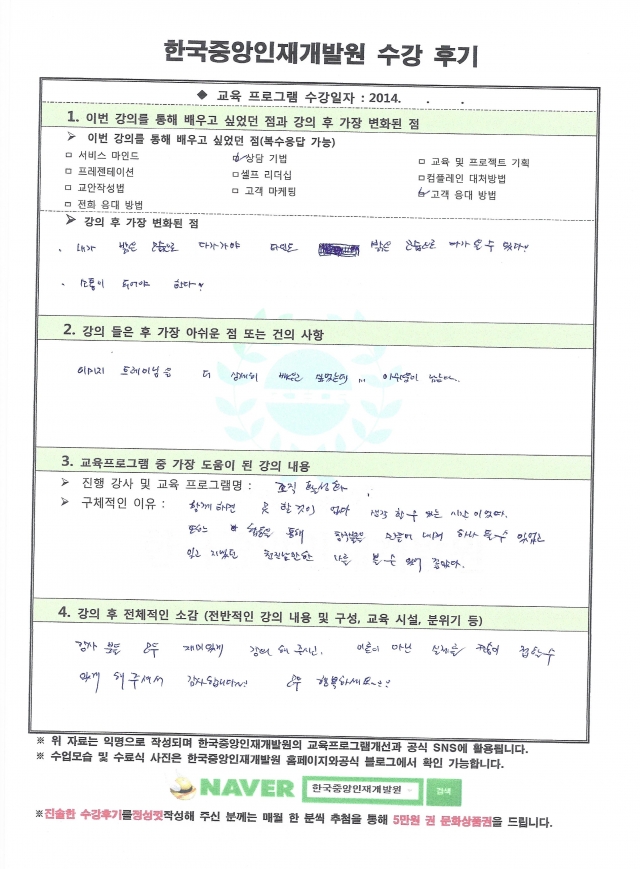 한국중앙인재개발원 수강 후기
◆ 교육 프로그램 수강일자 : 2014. . .
1. 이번 강의를 통해 배우고 싶었던 점과 강의 후 가장 변화된 점
➢ 이번 강의를 통해 배우고 싶었던 점(복수응답 가능)
□ 서비스 마인드 ☑ 상담 기법 □ 교육 및 프로젝트 기획
□ 프레젠테이션 □ 셀프 리더십 □ 컴플레인 대처방법
□ 교안작성법 □ 고객 마케팅 ☑ 고객 응대 방법
□ 전화 응대 방법
➢ 강의 후 가장 변화된 점
. 내가 밝은 모습으로 다가가야 타인도 밝은 모습으로 다가 올 수 있다!
. 소통이 되어야 한다!
2. 강의 들은 후 가장 아쉬운 점 또는 건의 사항
이미지 트레이닝을 더 상세히 배우고 싶었는데 ... 아쉬움이 남는다..
3. 교육프로그램 중 가장 도움이 된 강의 내용
➢ 진행 강사 및 교육 프로그램명 : 조직 활성화
➢ 구체적인 이유 : 함께 하면 못 할 것이 없다 생각 할 수 있는 시간이었다.
또는 통해 하나 될 수 있었고
잊고 지냈던 천진난만한 나를 볼 수 있어 좋았다.
4. 강의 후 전체적인 소감 (전반적인 강의 내용 및 구성, 교육 시설, 분위기 등)
강사 분들 모두 재미있게 강의 해 주시고, 이론이 아닌 실전을 접할 수
있게 해 주셔서 감사합니다~! 모두 행복하세요~!!
※ 위 자료는 익명으로 작성되며 한국중앙인재개발원의 교육프로그램개선과 공식 SNS에 활용됩니다.
※ 수업모습 및 수료식 사진은 한국중앙인재개발원 홈페이지와공식 블로그에서 확인 가능합니다.
NAVER 한국중앙인재개발원 검색
※진솔한 수강후기를정성껏작성해 주신 분께는 매월 한 분씩 추첨을 통해 5만원 권 문화상품권을 드립니다.